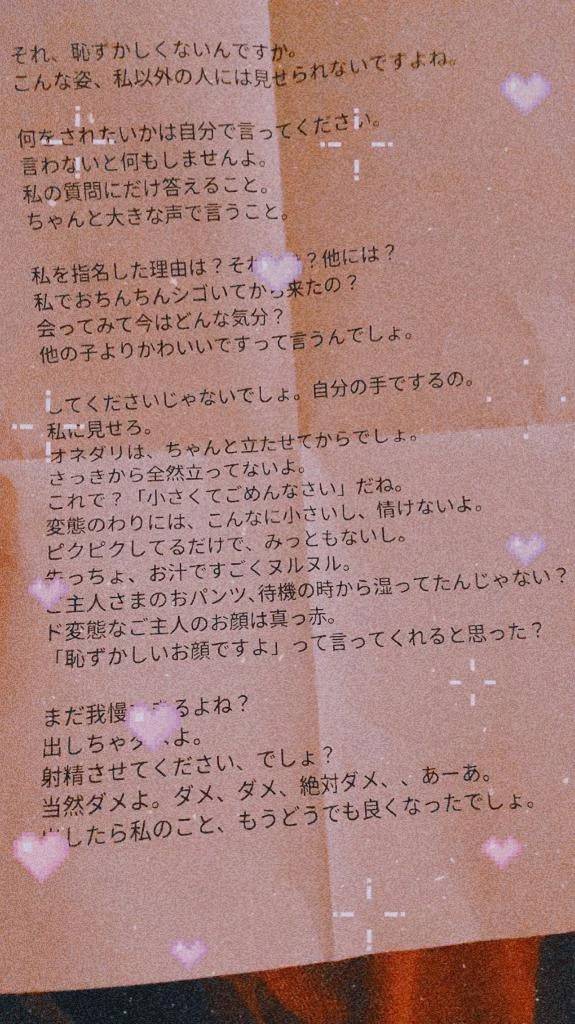 それ、恥ずかしくないんですか。
こんな姿、私以外の人には見せられないですよね。
何をされたいかは自分で言ってください。
言わないと何もしませんよ。
私の質問にだけ答えること。
ちゃんと大きな声で言うこと。
私を指名した理由は？それ？他には？
私でおちんちんシゴいてから来たの？
会ってみて今はどんな気分？
他の子よりかわいいですって言うんでしょ。
してくださいじゃないでしょ。自分の手でするの。
私に見せろ。
オネダリは、ちゃんと立たせてからでしょ。
さっきから全然立ってないよ。
これで？「小さくてごめんなさい」だね。
変態のわりには、こんなに小さいし、情けないよ。
ピクピクしてるだけで、みっともないし。
先っちょ、お汁ですごくヌルヌル。
ご主人さまのおパンツ、待機の時から湿ってたんじゃない？
ド変態なご主人のお顔は真っ赤。
「恥ずかしいお顔ですよ」って言ってくれると思った？
まだ我慢できるよね？
出しちゃダメよ。
射精させてください、でしょ？
当然ダメよ。ダメ、ダメ、絶対ダメ、、あーあ。
出したら私のこと、もうどうでも良くなったでしょ。